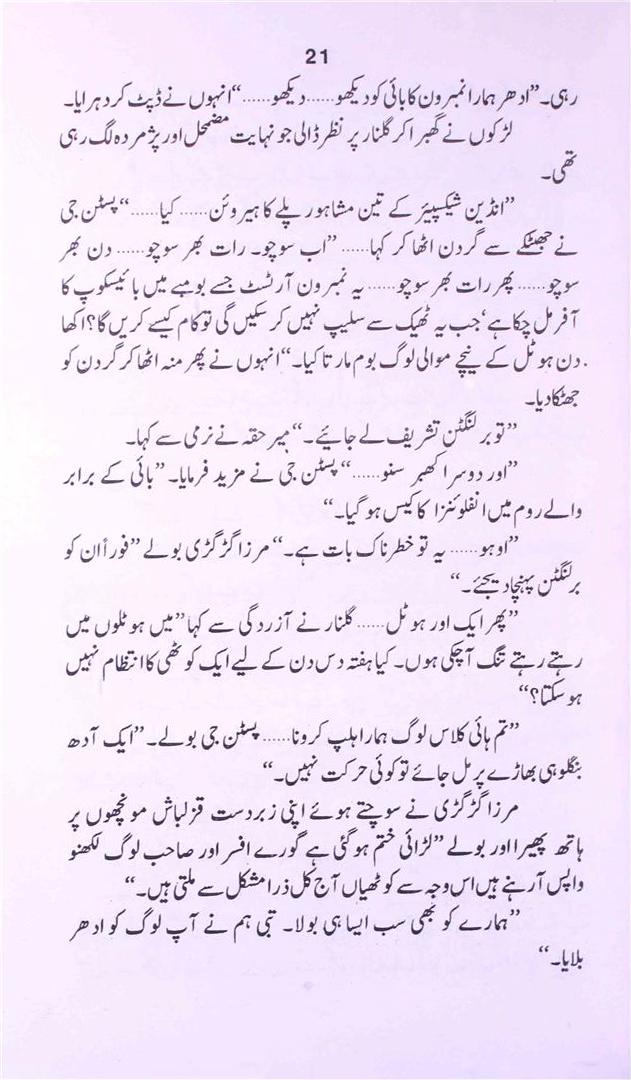 21
رہی۔ ”ادھر ہمارا نمبرون کا بائی کو دیکھو...... دیکھو......“ انہوں نے ڈپٹ کر دہرایا۔
لڑکوں نے گھبرا کر گلنار پر نظر ڈالی جو نہایت مضمحل اور پژمردہ لگ رہی
تھی۔
”انڈین شیکسپیئر کے تین مشاہور پلے کا ہیروئن...... کیا......“ پسٹن جی
نے جھٹکے سے گردن اٹھا کر کہا...... ”اب سوچو۔ رات بھر سوچو...... دن بھر
سوچو...... پھر رات بھر سوچو...... یہ نمبرون آرٹسٹ جسے بومبے میں بائیسکوپ کا
آفر مل چکا ہے‘ جب یہ ٹھیک سے سلیپ نہیں کر سکیں گی تو کام کیسے کریں گا؟ اکھا
دن ہوٹل کے نیچے موالی لوگ بوم مارتا کیا۔“ انہوں نے پھر منہ اٹھا کر گردن کو
جھٹکا دیا۔
”تو برلنگٹن تشریف لے جائیے۔“ میر حقہ نے نرمی سے کہا۔
”اور دوسرا کھبر سنو......“ پسٹن جی نے مزید فرمایا۔ ”بائی کے برابر
والے روم میں انفلوئنزا کا کیس ہو گیا۔“
”اوہو...... یہ تو خطرناک بات ہے۔“ مرزا گڑگڑی بولے ”فوراً ان کو
برلنگٹن پہنچا دیجئے۔“
”پھر ایک اور ہوٹل...... گلنار نے آزردگی سے کہا ”میں ہوٹلوں میں
رہتے رہتے تنگ آ چکی ہوں۔ کیا ہفتہ دس دن کے لیے ایک کوٹھی کا انتظام نہیں
ہو سکتا؟“
”تم ہائی کلاس لوگ ہمارا ہلپ کرو نا...... پسٹن جی بولے۔ ”ایک آدھ
بنگلو ہی بھاڑے پر مل جائے تو کوئی حرکت نہیں۔“
مرزا گڑگڑی نے سوچتے ہوئے اپنی زبردست قزلباش مونچھوں پر
ہاتھ پھیرا اور بولے ”لڑائی ختم ہو گئی ہے گورے افسر اور صاحب لوگ لکھنو
واپس آ رہے ہیں اس وجہ سے کوٹھیاں آج کل ذرا مشکل سے ملتی ہیں۔“
”ہمارے کو بھی سب ایسا ہی بولا۔ تبی ہم نے آپ لوگ کو ادھر
بلایا۔“